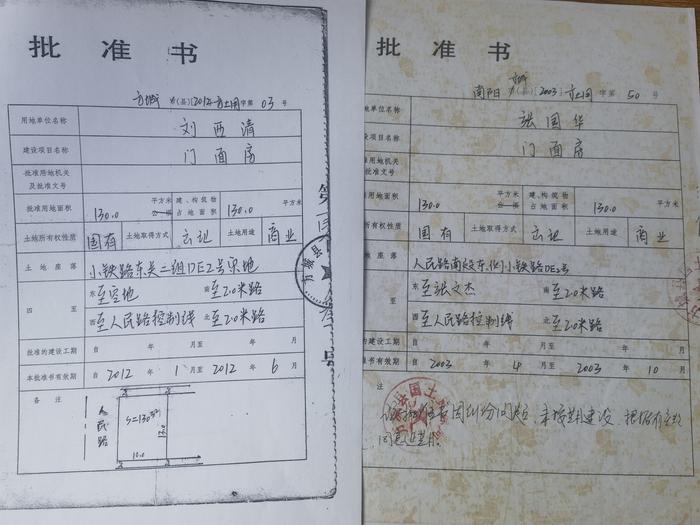 批准书
方城 (县)[2012]方土国字第 03 号
用地单位名称 刘西清
建设项目名称 门面房
批准用地机关及批准文号
批准用地面积 130.0 平方米 公顷 建、构筑物占地面积 130.0 平方米
土地所有权性质 国有 土地取得方式 土地用途 商业
土地座落 小铁路东关二组DE2号宗地
四至 东至空地 南至20米路
西至人民路控制线 北至20米路
批准的建设工期 自 年 月至 年 月
本批准书有效期 自 2012 年 1 月至 2012 年 6 月
备注
人民路
S=130
13.0
10.0
批准书
南阳 方城 (县)[2003]方土国字第 50 号
用地单位名称 张国华
建设项目名称 门面房
批准用地机关及批准文号
批准用地面积 130.0 平方米 公顷 建、构筑物占地面积 130.0 平方米
所有权性质 国有 土地取得方式 土地用途 商业
地座落 人民路南段东侧小铁路DE2号
至 东至张文杰 南至20米路
西至人民路控制线 北至20米路
批准的建设工期 自 年 月至 年 月
准书有效期 自 2003 年 4 月至 2003 年 10 月
注
因纠纷问题，未按期建设，根据有关